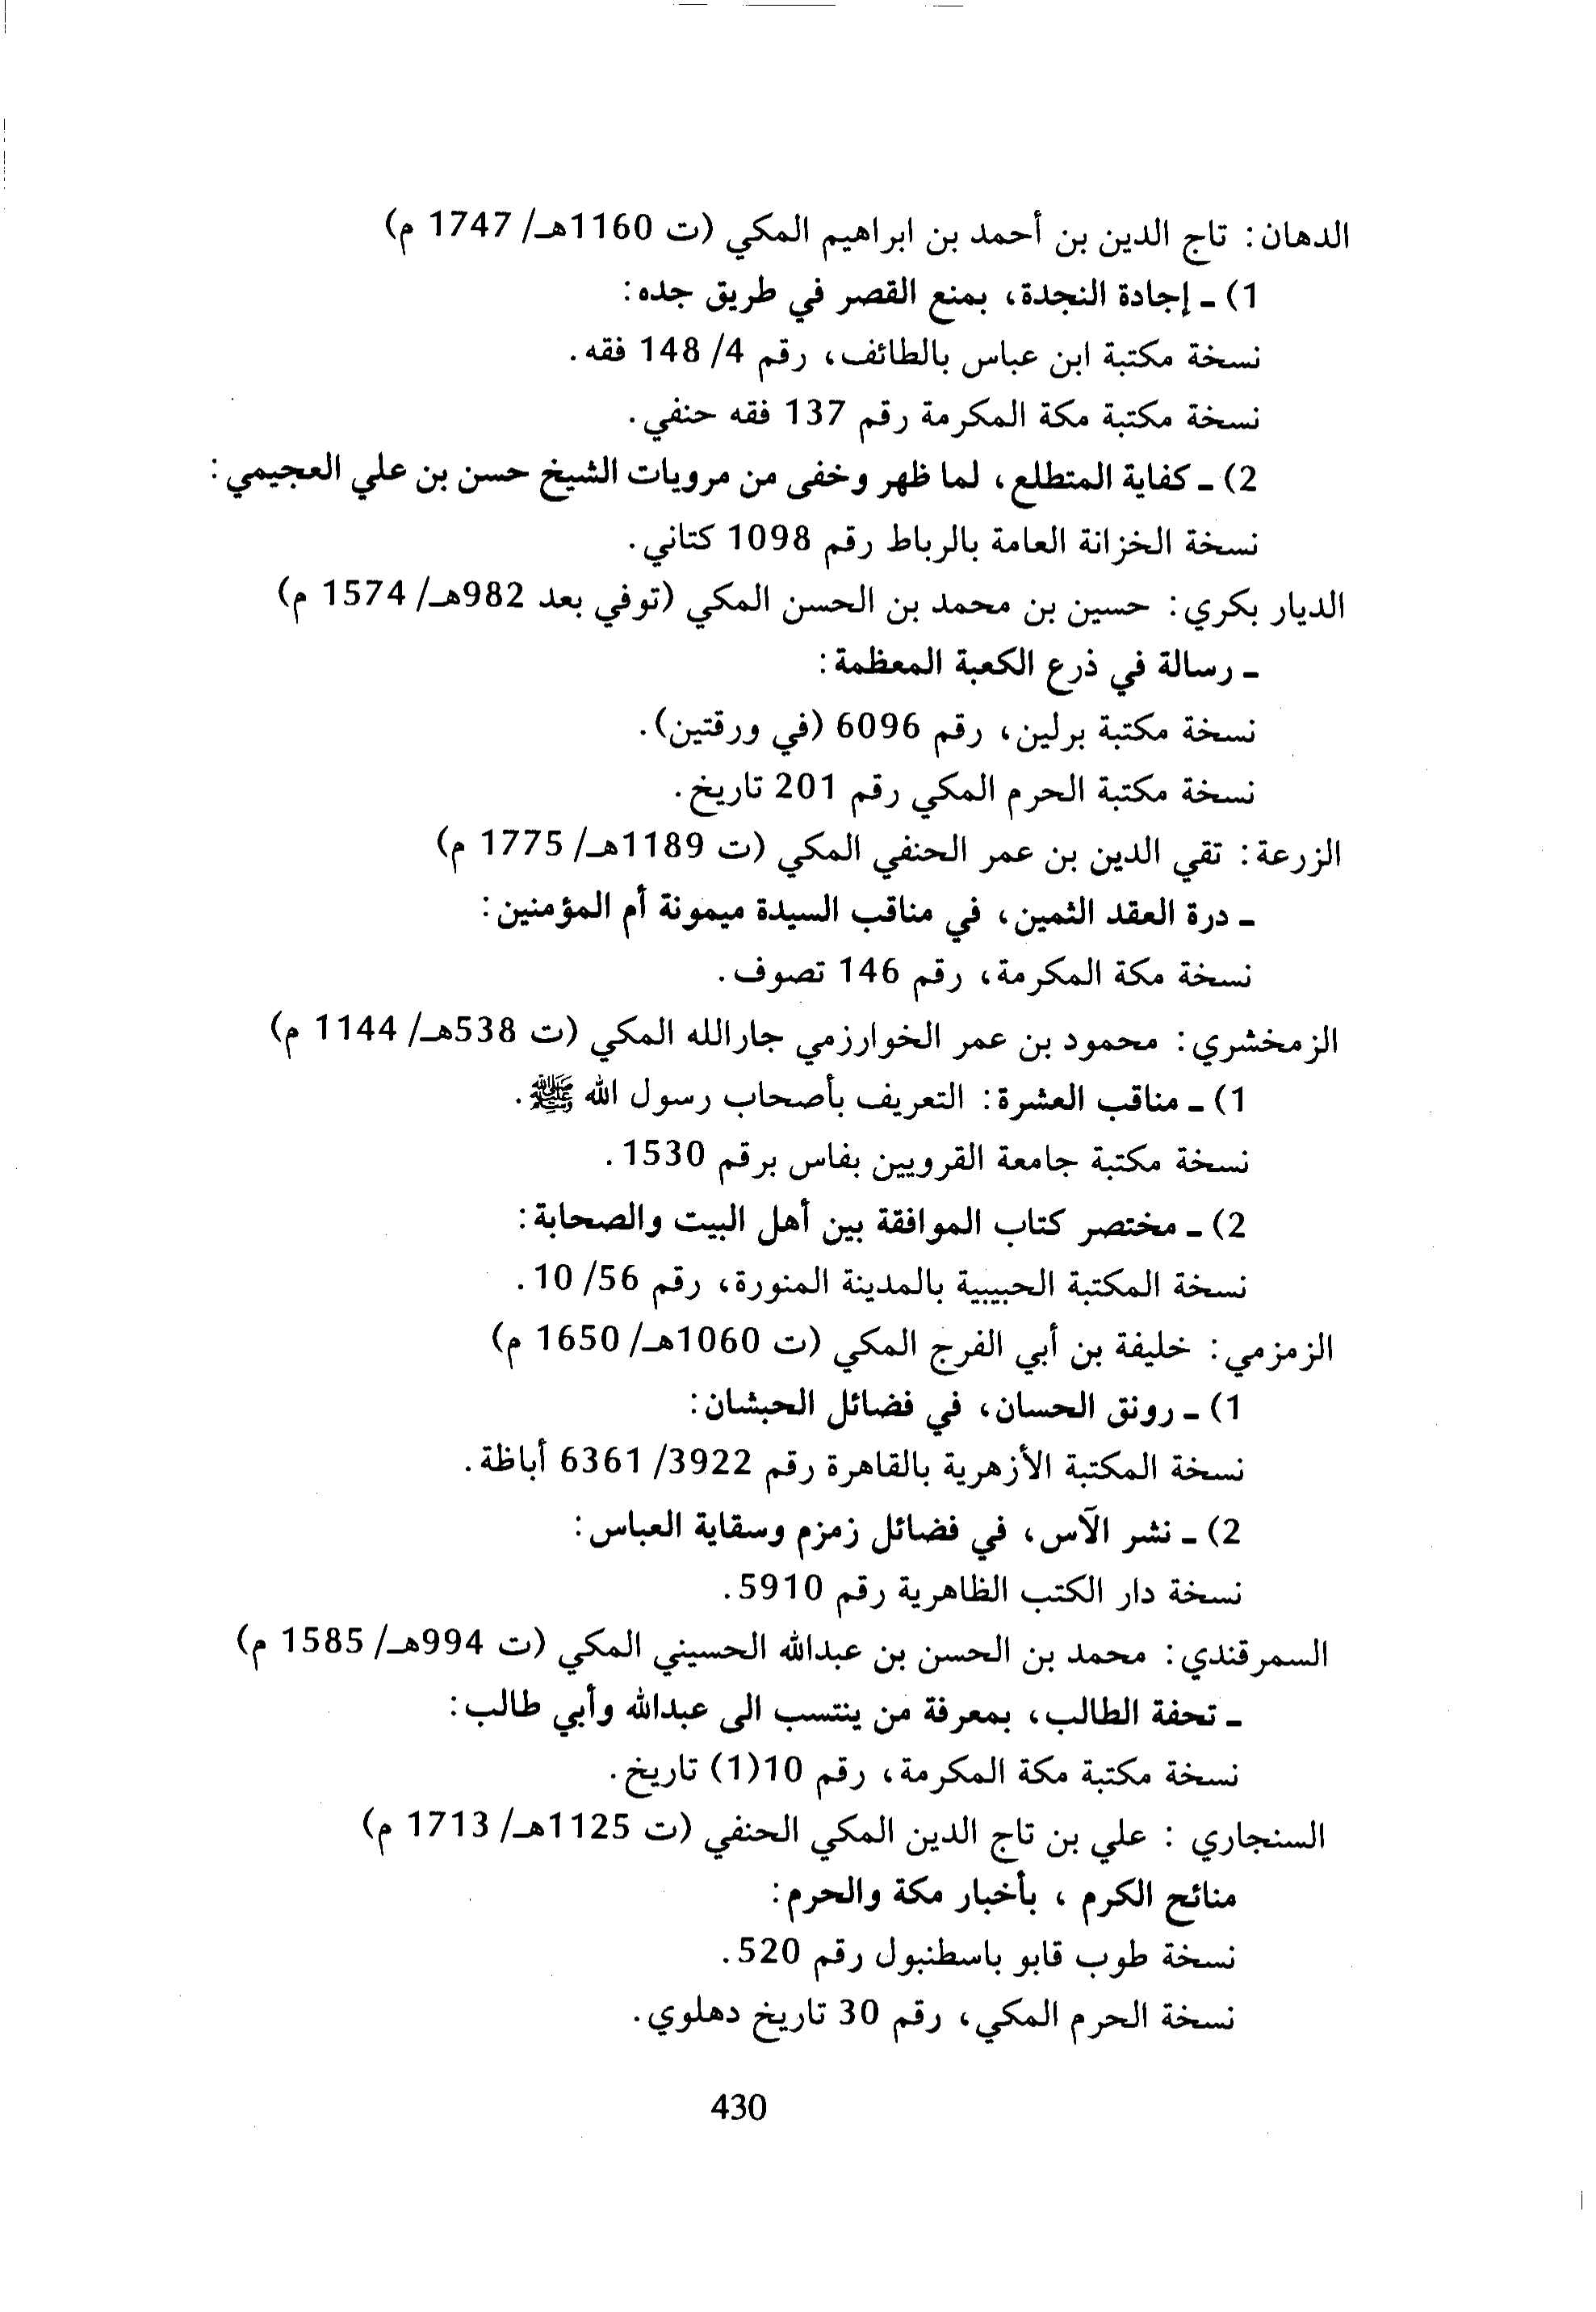 الدهان: تاج الدين بن أحمد بن ابراهيم المكي (ت 1160هـ/ 1747 م)
1) ـ إجادة النجدة، بمنع القصر في طريق جده:
نسخة مكتبة ابن عباس بالطائف، رقم 4/ 148 فقه.
نسخة مكتبة مكة المكرمة رقم 137 فقه حنفي.
2) ـ كفاية المتطلع، لما ظهر وخفى من مرويات الشيخ حسن بن علي العجيمي:
نسخة الخزانة العامة بالرباط رقم 1098 كتاني.
الديار بكري: حسين بن محمد بن الحسن المكي (توفي بعد 982هـ/ 1574 م)
ـ رسالة في ذرع الكعبة المعظمة:
نسخة مكتبة برلين، رقم 6096 (في ورقتين).
نسخة مكتبة الحرم المكي رقم 201 تاريخ.
الزرعة: تقي الدين بن عمر الحنفي المكي (ت 1189هـ/ 1775 م)
ـ درة العقد الثمين، في مناقب السيدة ميمونة أم المؤمنين:
نسخة مكة المكرمة، رقم 146 تصوف.
الزمخشري: محمود بن عمر الخوارزمي جارالله المكي (ت 538هـ/ 1144 م)
1) ـ مناقب العشرة: التعريف بأصحاب رسول الله ﷺ.
نسخة مكتبة جامعة القرويين بفاس برقم 1530.
2) ـ مختصر كتاب الموافقة بين أهل البيت والصحابة:
نسخة المكتبة الحبيبية بالمدينة المنورة، رقم 56/ 10.
الزمزمي: خليفة بن أبي الفرج المكي (ت 1060هـ/ 1650 م)
1) ـ رونق الحسان، في فضائل الحبشان:
نسخة المكتبة الأزهرية بالقاهرة رقم 3922/ 6361 أباظة.
2) ـ نشر الآس، في فضائل زمزم وسقاية العباس:
نسخة دار الكتب الظاهرية رقم 5910.
السمرقندي: محمد بن الحسن بن عبدالله الحسيني المكي (ت 994هـ/ 1585 م)
ـ تحفة الطالب، بمعرفة من ينتسب الى عبدالله وأبي طالب:
نسخة مكتبة مكة المكرمة، رقم 10(1) تاريخ.
السنجاري : علي بن تاج الدين المكي الحنفي (ت 1125هـ/ 1713 م)
منائح الكرم ، بأخبار مكة والحرم:
نسخة طوب قابو باسطنبول رقم 520.
نسخة الحرم المكي، رقم 30 تاريخ دهلوي.
430